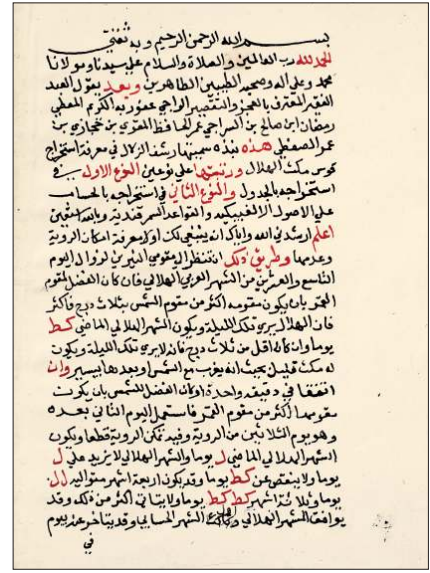 بسم الله الرحمن الرحيم وبه ثقتي
الحمد لله رب العالمين والصلاة والسلام علي سيدنا ومولانا
محمد وعلي اله وصحبه الطيبين الطاهرين وبعد يقول العبد
الفقير المعترف بالعجز والتقصير الراجي عفو ربه الكريم المعطي
رمضان ابن صالح بن عمر بن حجازي بن
عمر الصفطي هذه نبذه سميتها رشف الزلال في معرفة استخراج
قوس مكث الهلال ورتبتها علي نوعين النوع الاول في
استخراجه بالجدول والنوع الثاني في استخراجه بالحساب
علي الاصول الالغبيكيه والقواعد السمرقنديه وبالله استعين
اعلم ارشدني الله واياك انه ينبغي لك اولا معرفة امكان الروية
وعدمها وطريق ذلك ان تنظر الي مقومي النيرين لزوال اليوم
التاسع والعشرين من الشهر العربي الهلالي فان كان الفضل لمقوم
القمر بان يكون مقومه اكثر من مقوم الشمس بثلاث درج فاكثر
فان الهلال يري تلك الليلة ويكون الشهر الهلالي الماضي كط
يوما وان كان اقل من ثلاث درج فانه لا يري تلك الليلة ويكون
له مكث قليل بحيث انه يغرب مع الشمس او بعدها بيسير وان
اتفقا في دقيقه واحدة او كان الفضل للشمس بان يكون
مقومها اكثر من مقوم القمر فاستعمل اليوم الثاني بعده
وهو يوم الثلاثين من الروية وفيه تمكن الروية قطعا ويكون
الشهر الهلالي الماضي ل يوما والشهر الهلالي لا يزيد علي ل
يوما ولا ينقص عن كط يوما وقد يكون اربعة اشهر متوالية ل ل
يوما وثلاثة اشهر كط كط كط يوما ولا يتاتي اكثر من ذلك وقد
يوافق الشهر الهلالي الشهر الحسابي وقد يتاخر عنه بيوم
في